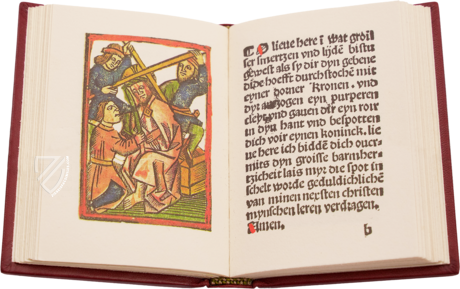 O lieue here i wat groiſ
ſer ſmertzen vn lijdē biſtu
geweſt als ſy dir dyn gebene
dide hoefft durchſtochē mit
eyner dorner Kronen. vnd
dyr auzogen eyn purperen
cleyt vnd gauen dir eyn roir
in dyn hant vnd beſpotten
dich voir eynen koninck, lie
ue here ich bidd dich ouer-
mits dyn groiſſe barmher
tzicheit lais myr die ſpot in
ſchelt worde geduldichlichē
van minen nexſten chriſten
mynſchen leren verdragen.
Amen.
b